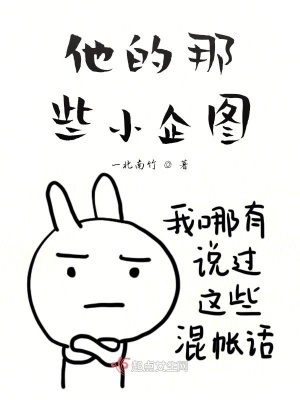 他的那
些小企图
一北南竹 ◎ 著
我哪有
说过
这些
混帐话
起点女生网